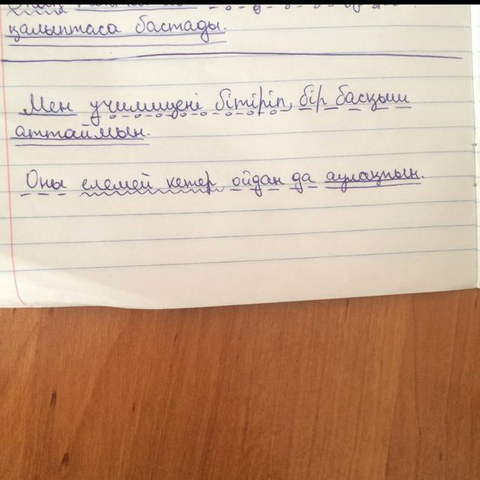 қалыптаса бастады.
Мен училищені бітіріп, бір басқыш
аттаймын.
Оны елемей кетер ойдан да аулақпын.